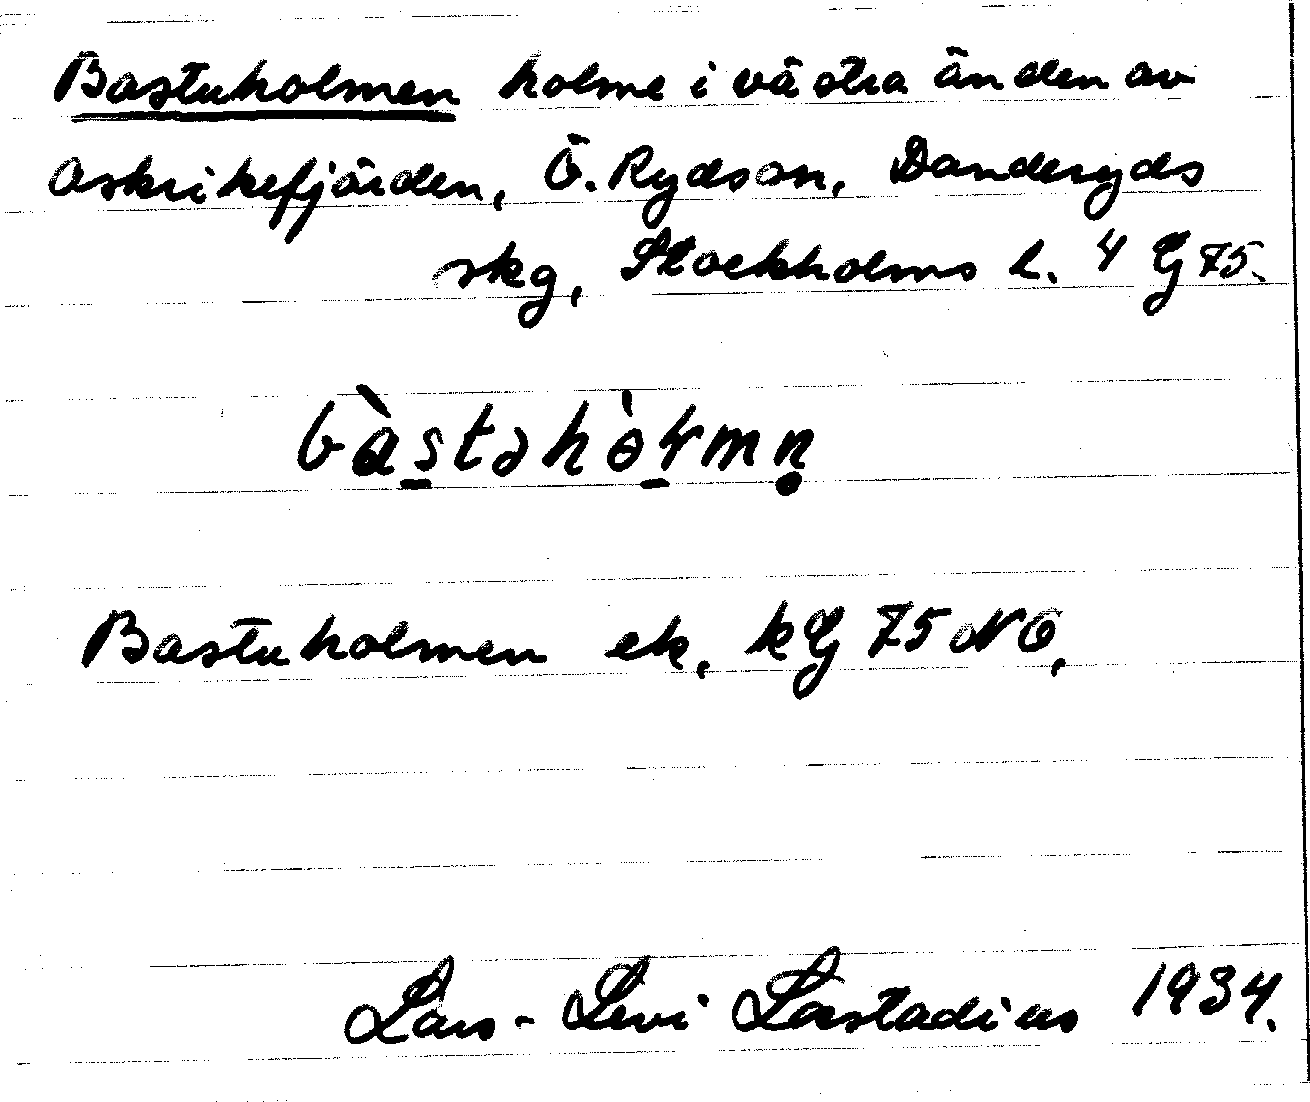 Bastuholmen holme i västra änden av
Askrikefjärden, Ö. Rydsön, Danderyds
skg, Stockholms l. 4 G 75.
bàstəhòłmn̥
Bastuholmen ek. kG 75 NÖ,
Lars-Levi Læstadius 1934.